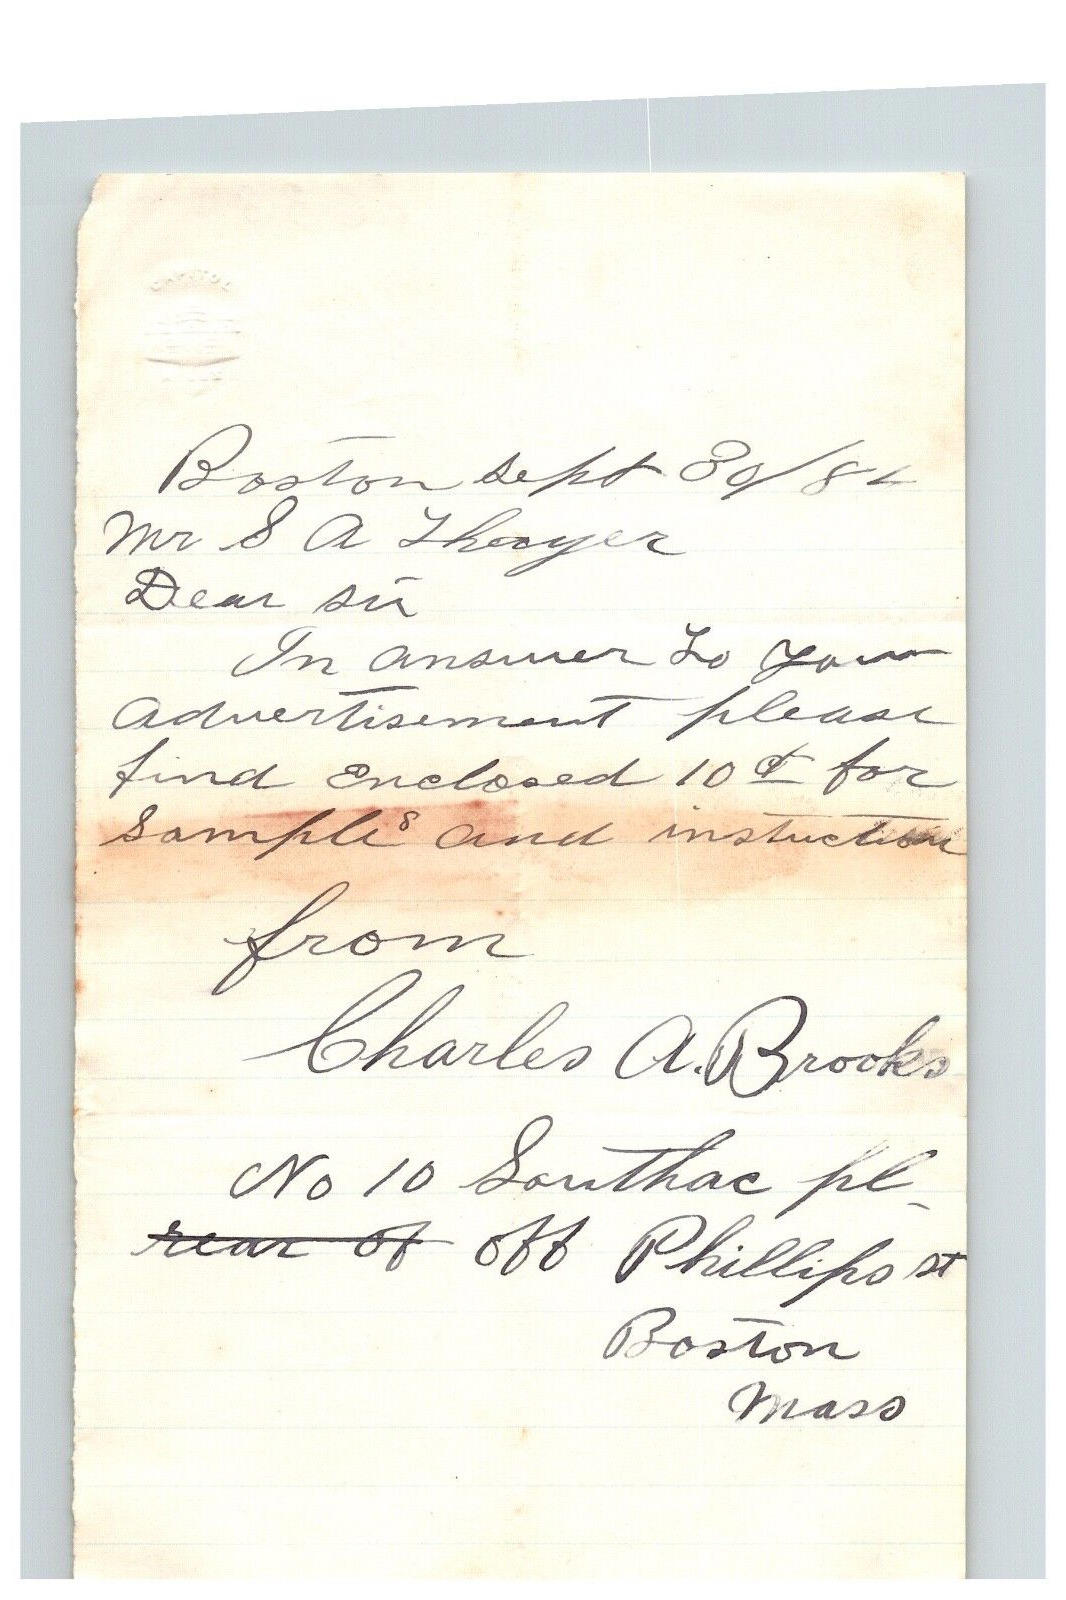 CAPITOL
Boston Sept 30/84
Mr S A Thayer
Dear Sir
In answer to your
advertisement please
find enclosed 10¢ for
samples and instuction
from
Charles A. Brooks
No 10 Southac pl
rear of off Phillips st
Boston
Mass